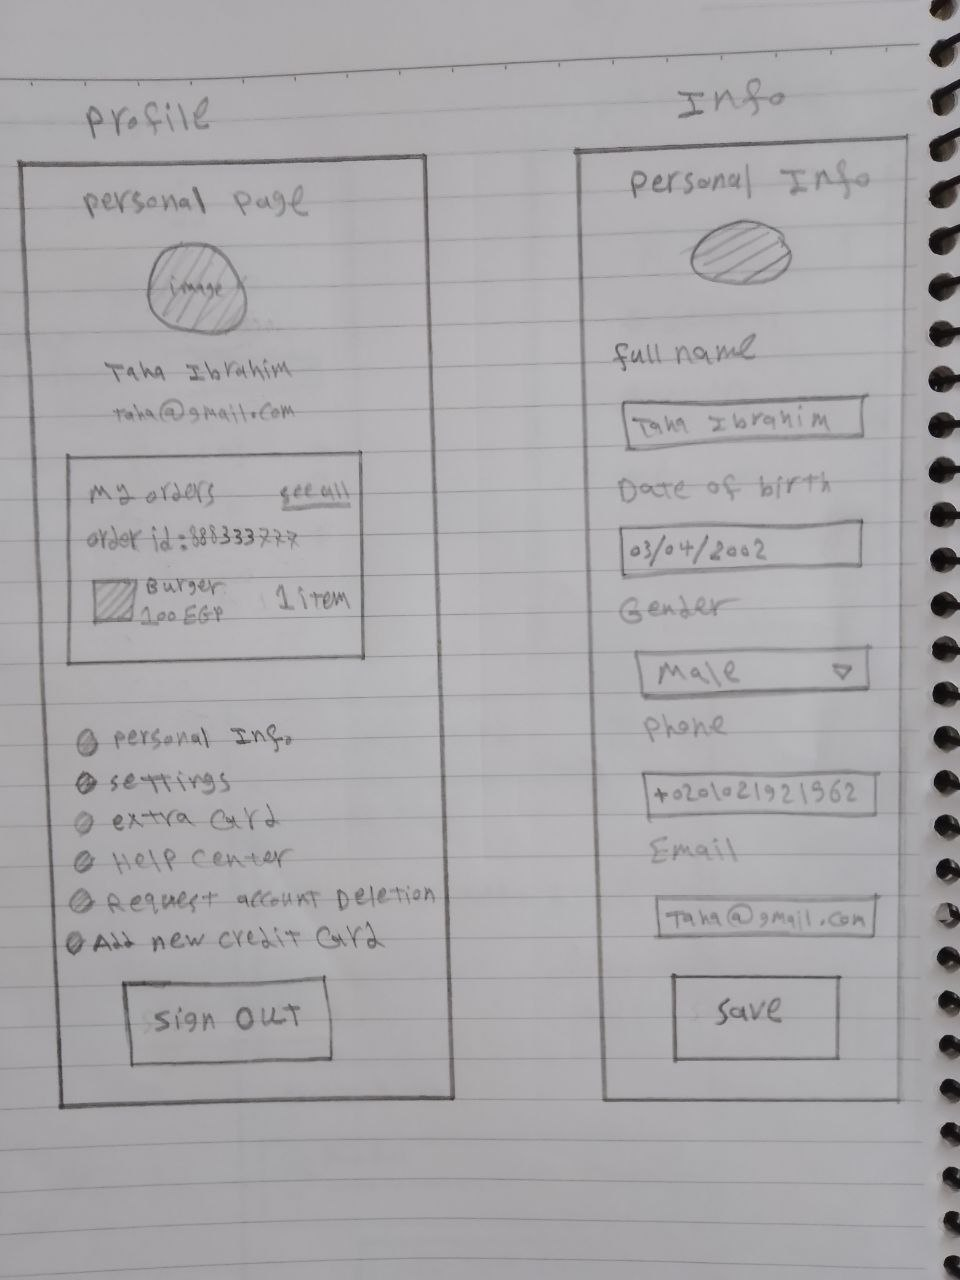 Profile
Personal page
image
Taha Ibrahim
taha@gmail.com
My orders see all
order id:888333777
Burger
100 EGP
1 item
Personal Info
settings
extra Card
Help Center
Request account Deletion
Add new credit Card
Sign OUT
Info
Personal Info
full name
Taha Ibrahim
Date of birth
03/04/2002
Gender
Male
Phone
+0201021921962
Email
Taha@gmail.com
save